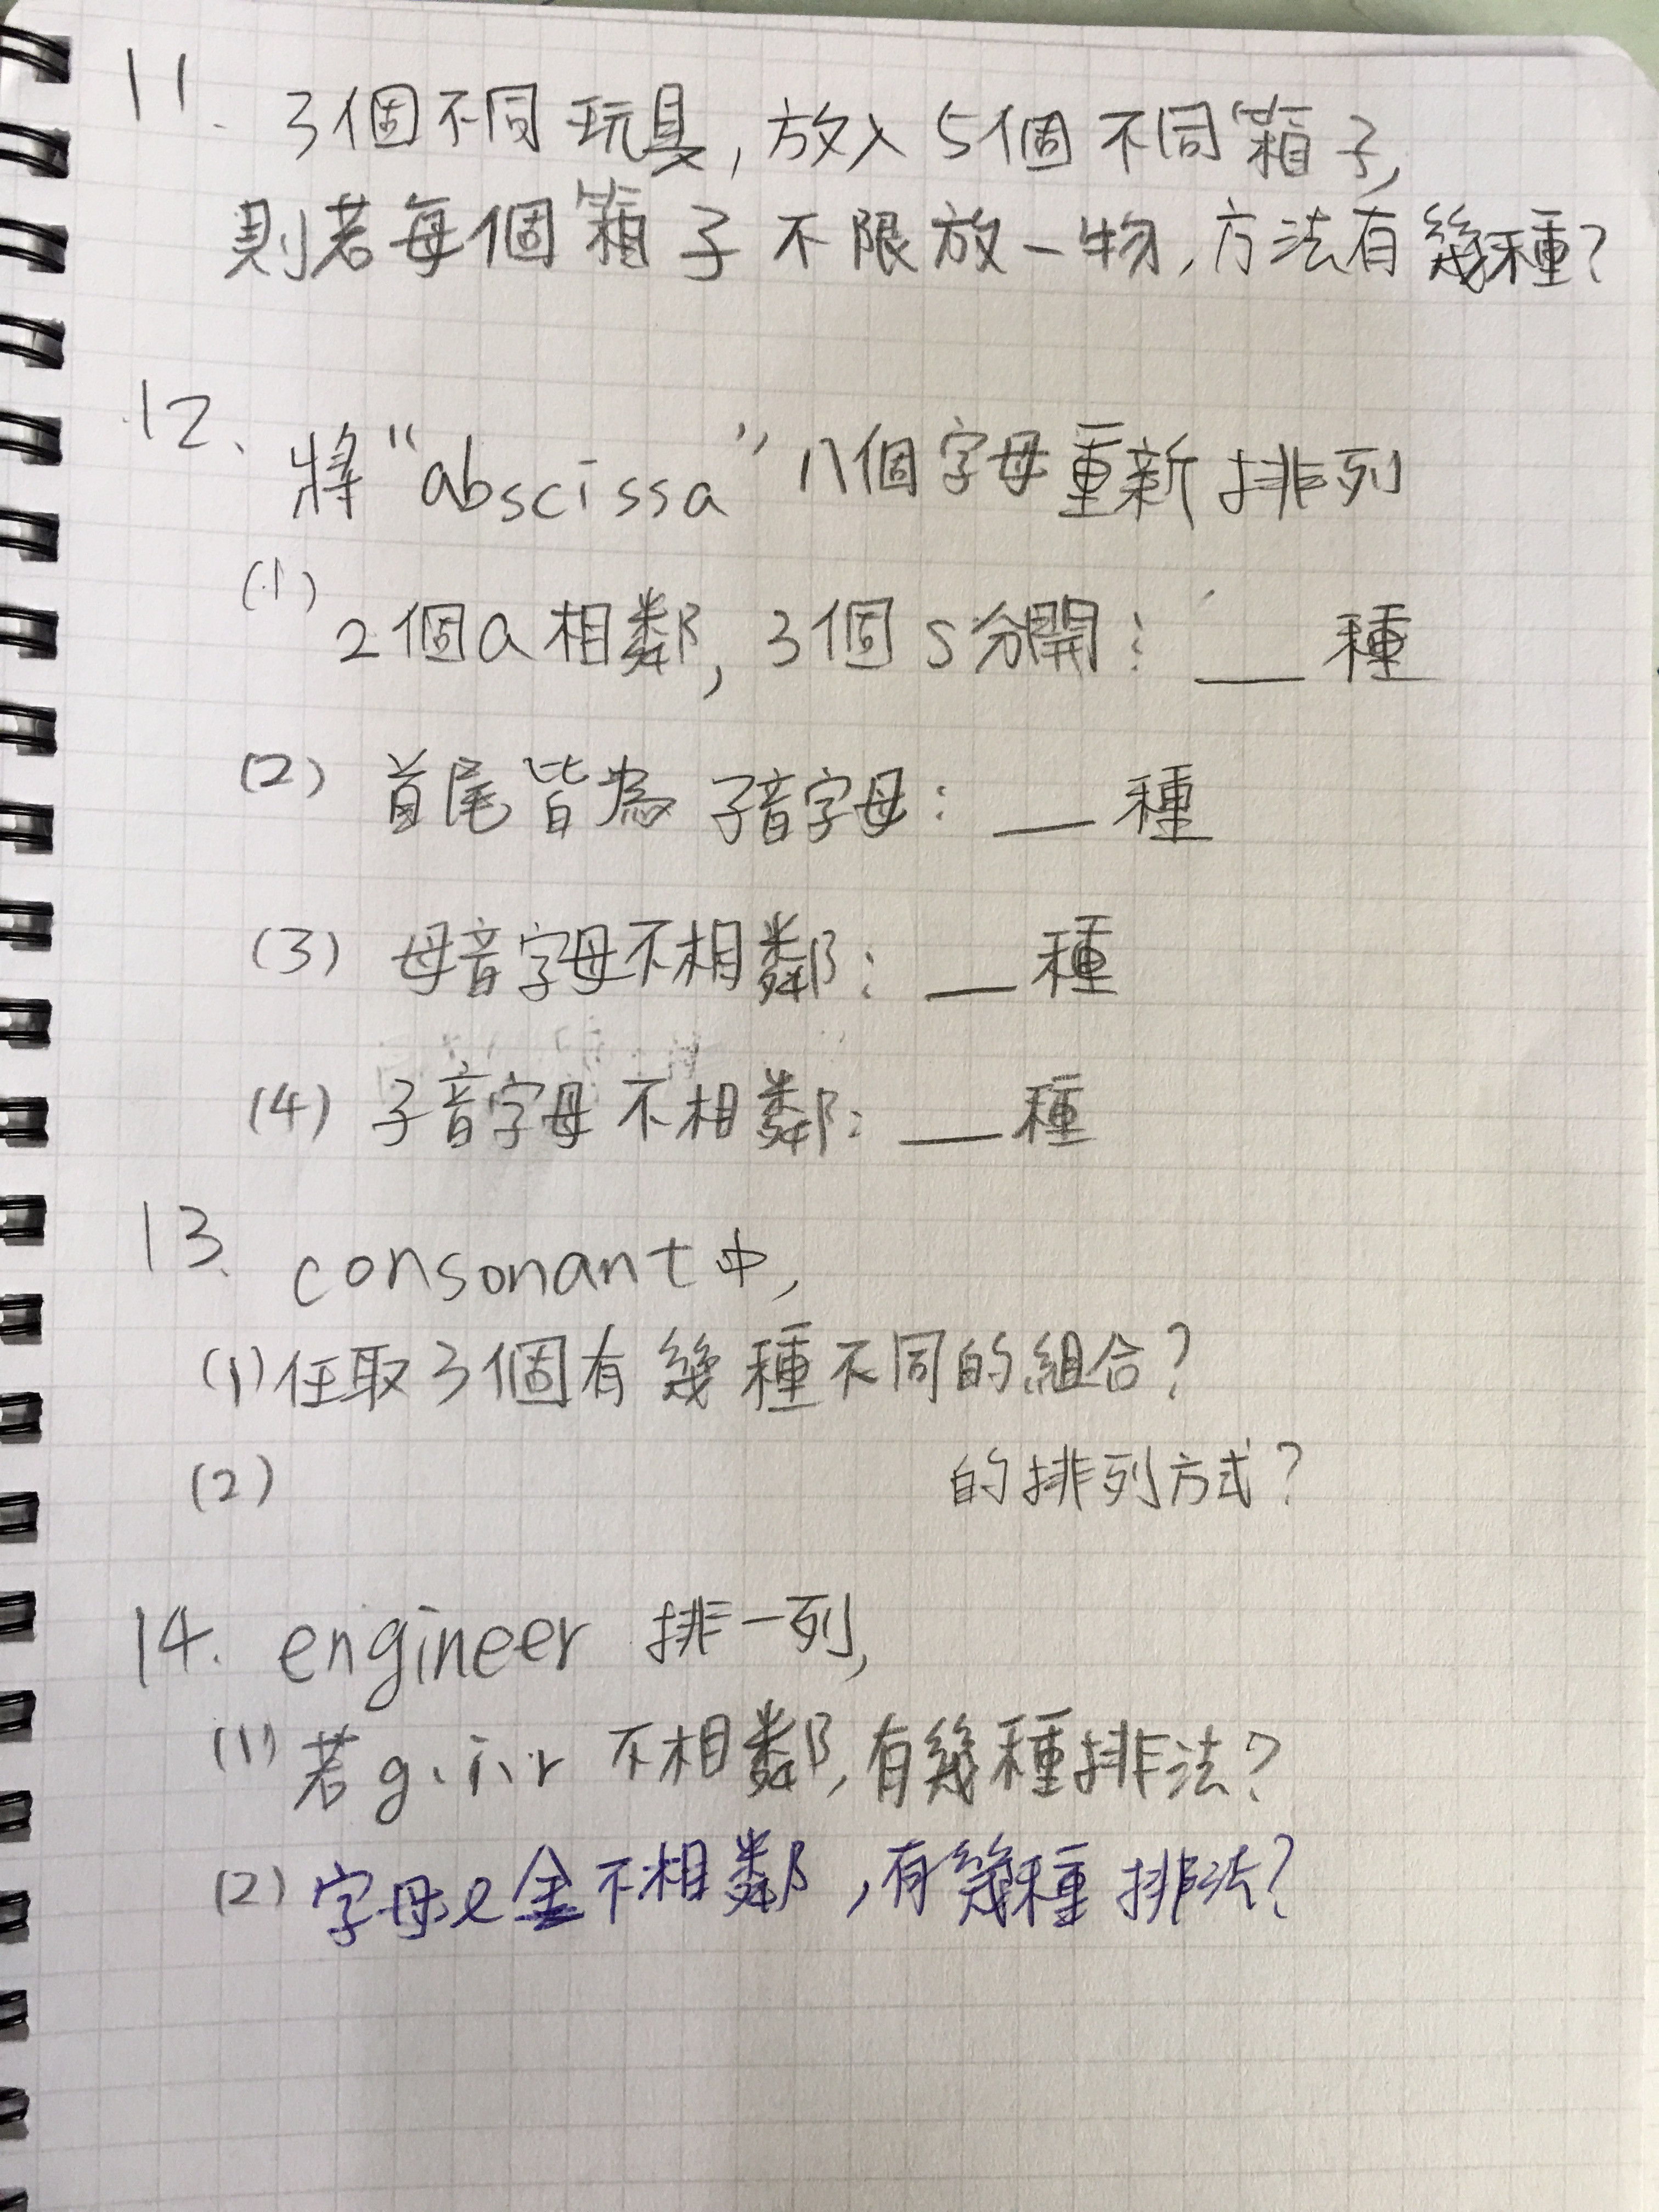 11、3個不同玩具,放入5個不同箱子,
則若每個箱子不限放一物,方法有幾種?
12、將"abscissa"八個字母重新排列
(1) 2個a相鄰,3個s分開:__種
(2) 首尾皆為子音字母:__種
(3) 母音字母不相鄰:__種
(4) 子音字母不相鄰:__種
13、consonant中,
(1)任取3個有幾種不同的組合?
(2) 的排列方式?
14. engineer 排一列,
(1) 若g、i、r 不相鄰,有幾種排法?
(2) 字母e全不相鄰,有幾種排法?